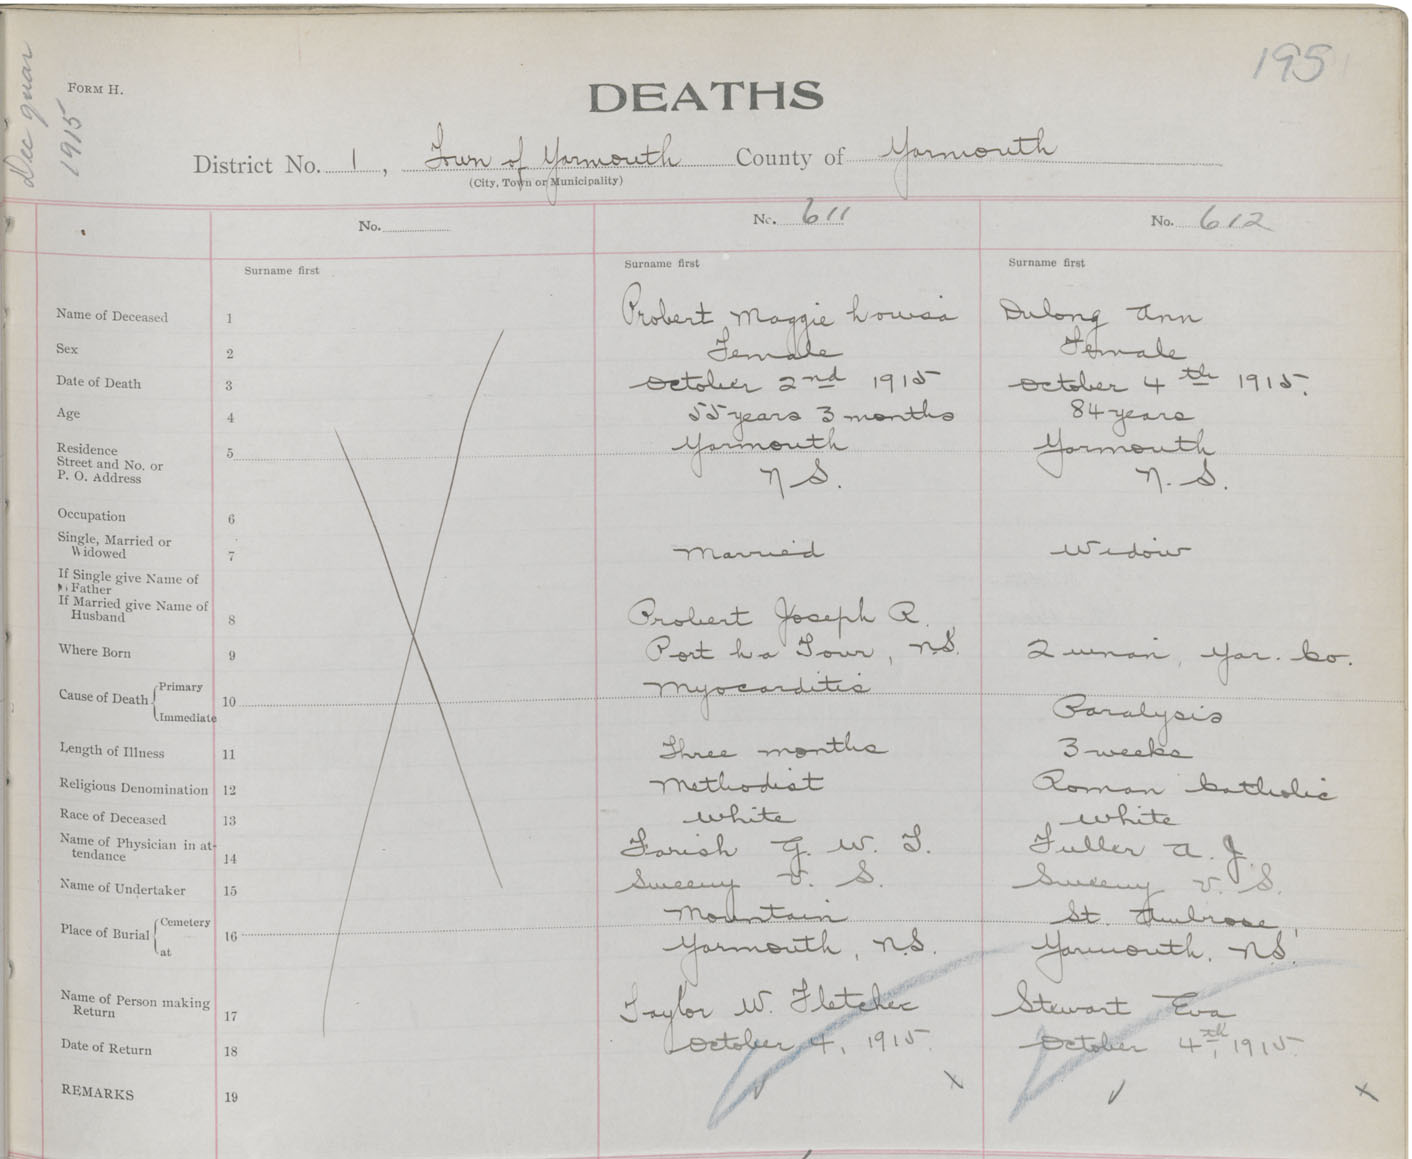 Dec quar
1915
195
FORM H.
DEATHS
District No. 1, Town of Yarmouth County of Yarmouth
(City, Town or Municipality)
No. No. 611 No. 612
Surname first Surname first Surname first
Name of Deceased 1 Probert Maggie Louisa Dulong Ann
Sex 2 Female Female
Date of Death 3 October 2nd 1915 October 4th 1915.
Age 4 55 years 3 months 84 years
Residence
Street and No. or
P. O. Address
5 Yarmouth Yarmouth
N S. N. S.
Occupation 6
Single, Married or
Widowed 7 Married Widow
If Single give Name of
Father
If Married give Name of
Husband 8 Probert Joseph R.
Where Born 9 Port La Tour, N.S. Quinan, Yar. Co.
Cause of Death Primary 10 Myocarditis
Immediate Paralysis
Length of Illness 11 Three months 3 weeks
Religious Denomination 12 Methodist Roman Catholic
Race of Deceased 13 White White
Name of Physician in at-
tendance 14 Farish G. W. T. Fuller A. J.
Name of Undertaker 15 Sweeny V. S. Sweeny V. S.
Place of Burial Cemetery 16 Mountain St. Ambrose,
at Yarmouth, N.S. Yarmouth, N.S.
Name of Person making
Return 17 Taylor W. Fletcher Stewart Eva
Date of Return 18 October 4, 1915. October 4th, 1915.
REMARKS 19